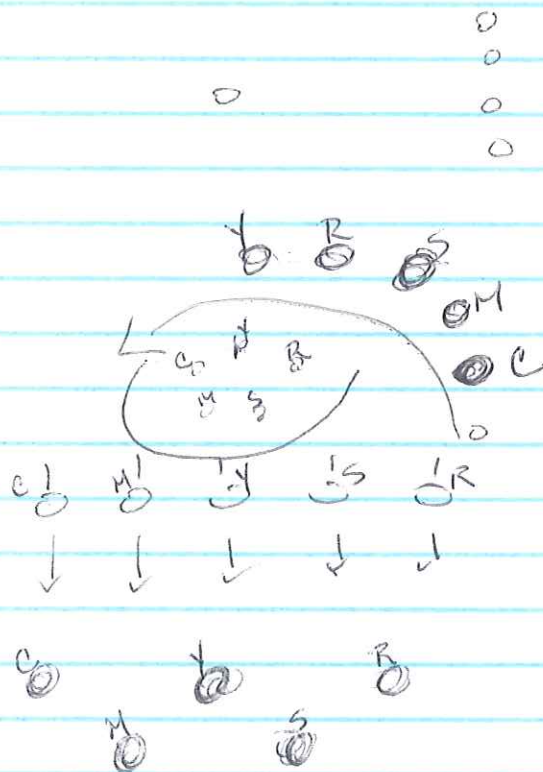 Y R S
M
C
C Y R
M S
C M Y S R
C Y R
M S